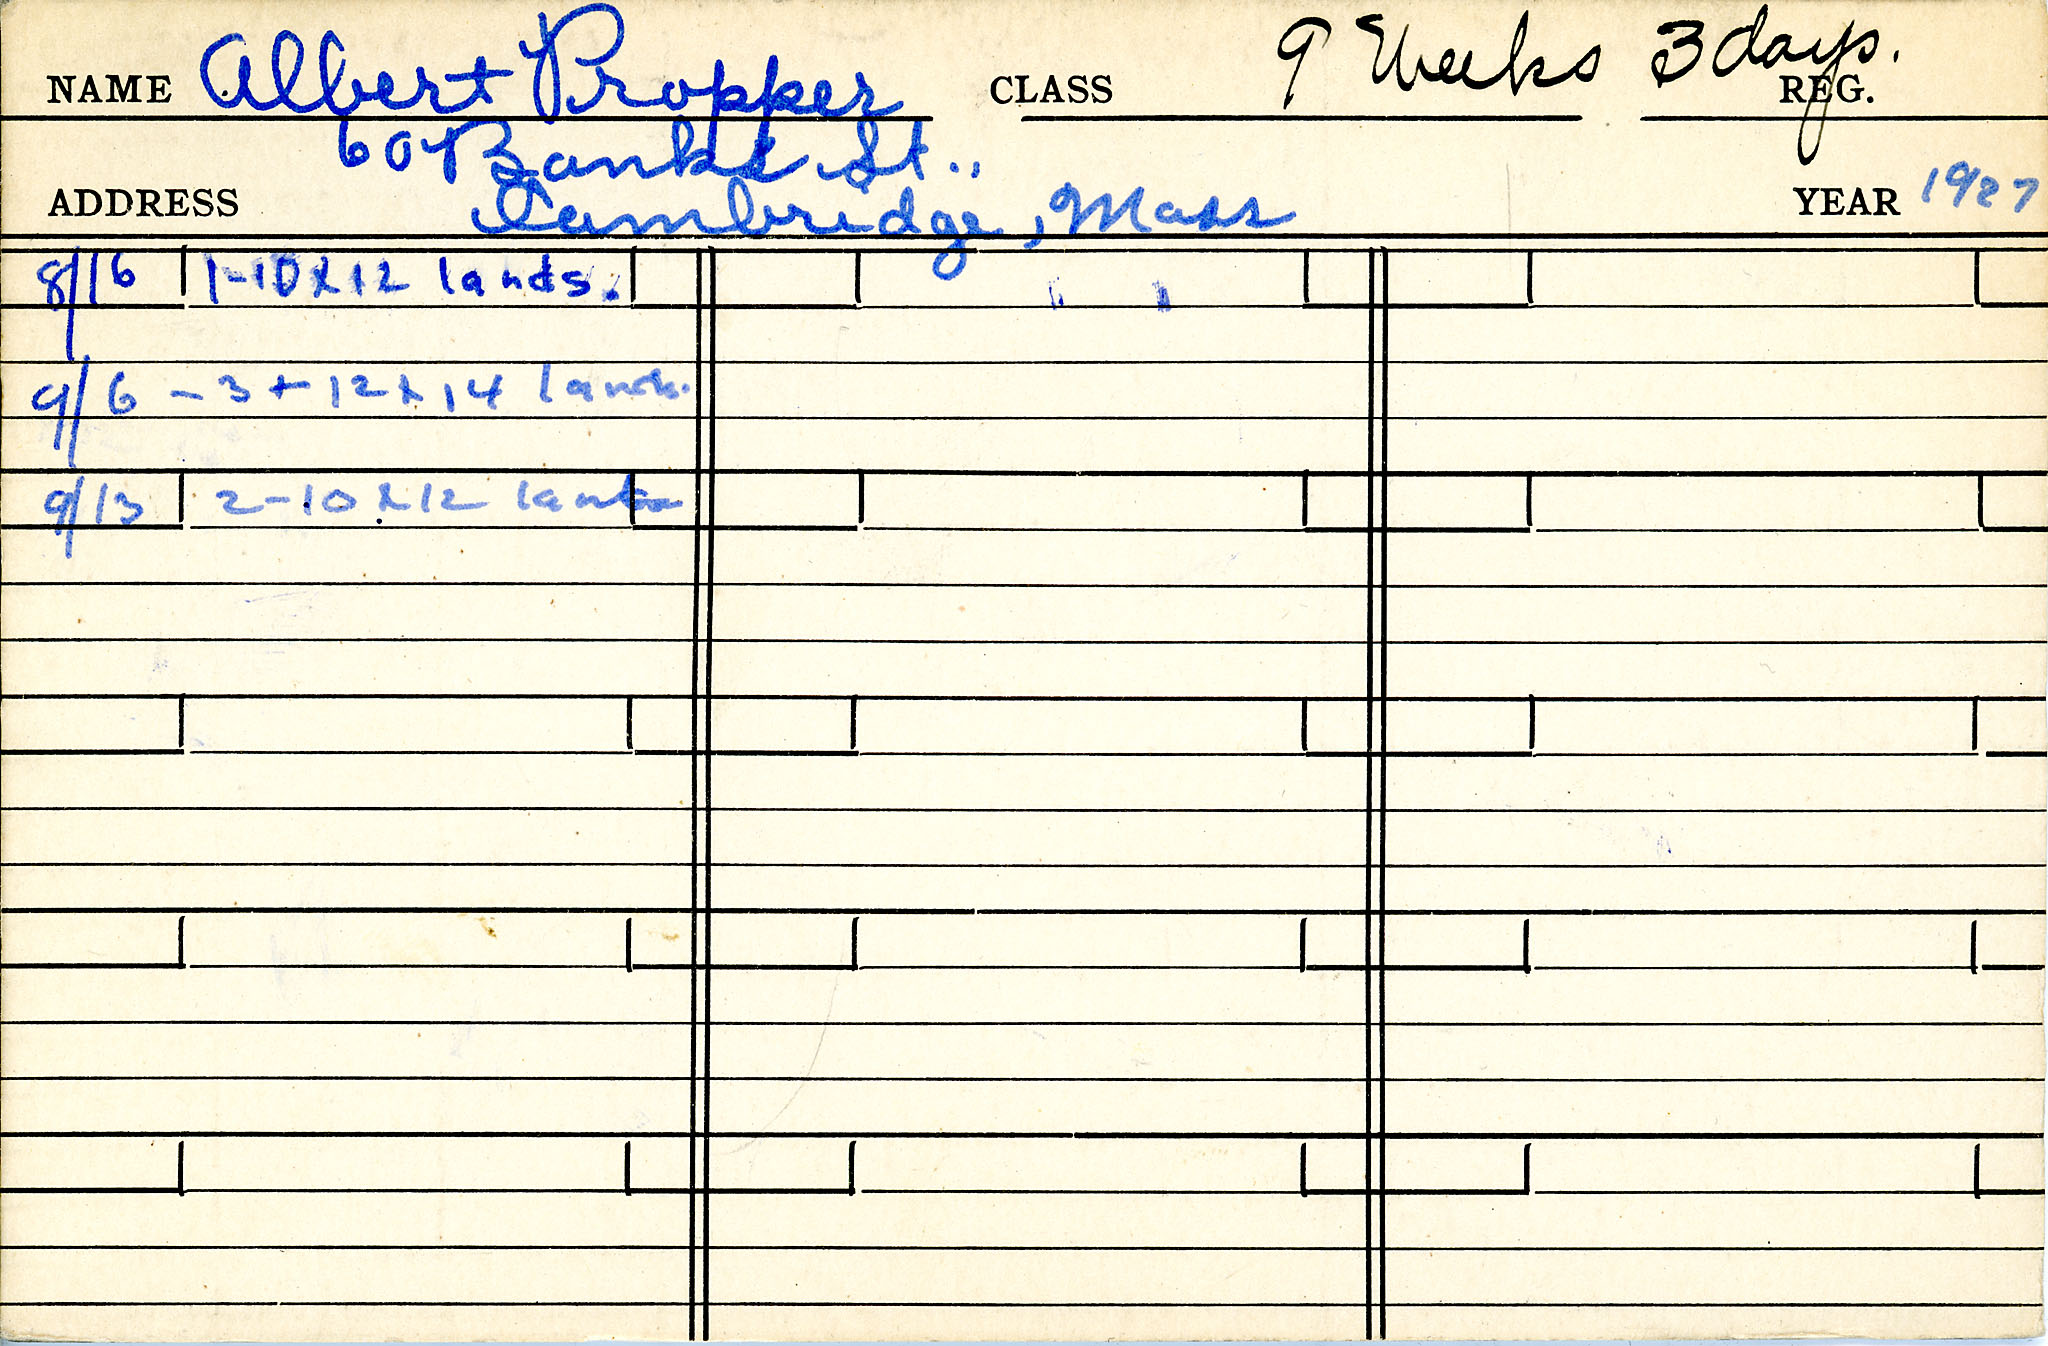 NAME Albert Propper CLASS 9 Weeks 3 days. REG.
60 Banks St.,
ADDRESS Cambridge, Mass YEAR 1927
8/16 1-10x12 lands.
9/6 - 3 + 12x14 lands.
9/13 2-10x12 lands